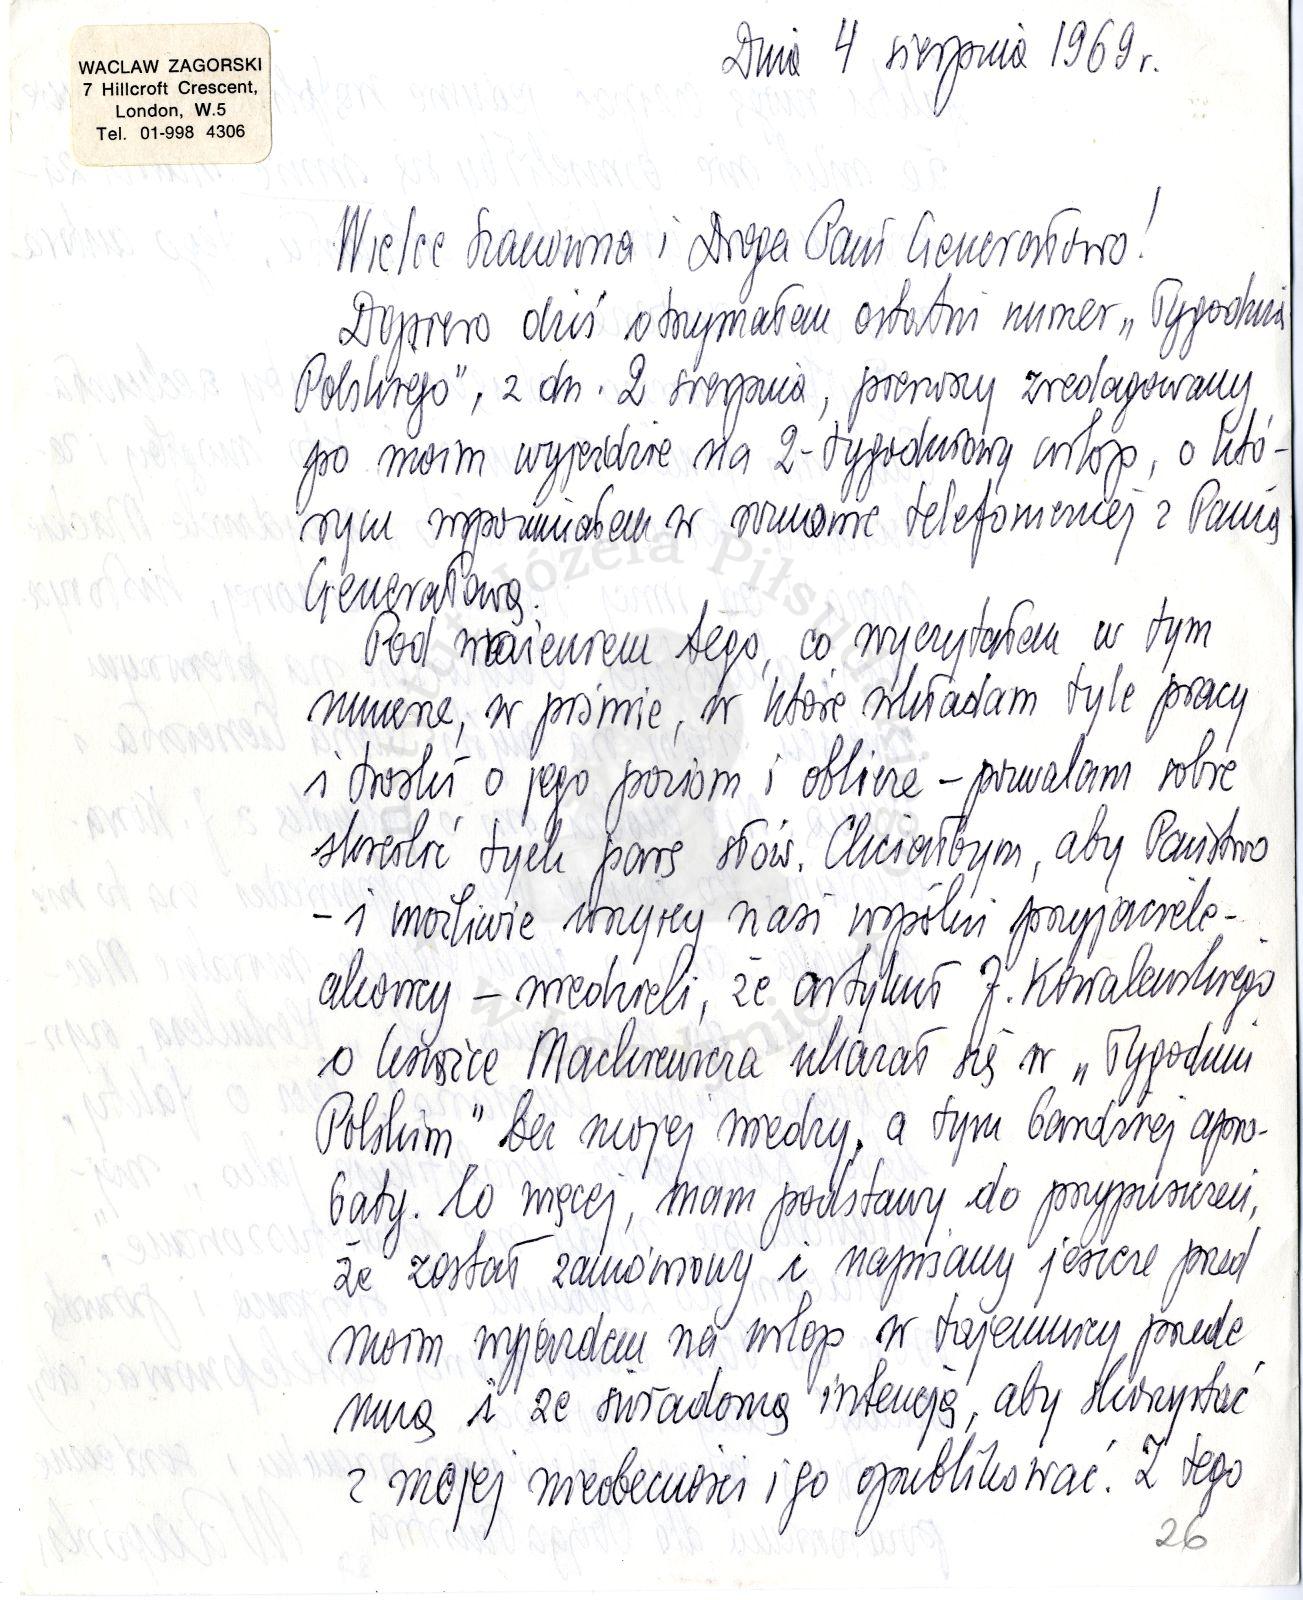 WACLAW ZAGORSKI
7 Hillcroft Crescent,
London, W.5
Tel. 01-998 4306
Dnia 4 sierpnia 1969 r.
Wielce Szanowna i Droga Pani Generałowo!
Dopiero dziś otrzymałem ostatni numer „Tygodnia
Polskiego", z dn. 2 sierpnia, pierwszy zredagowany
po moim wyjeździe na 2-tygodniowy urlop, o któ-
rym wspomniałem w rozmowie telefonicznej z Panią
Generałową.
Pod wrażeniem tego, co wyczytałem w tym
numerze, w piśmie, w które wkładam tyle pracy
i troski o jego poziom i oblicze – pozwalam sobie
skreślić tych parę słów. Chciałbym, aby Państwo
– i możliwie wszyscy nasi wspólni przyjaciele-
akowcy – wiedzieli, że artykuł J. Kowalewskiego
o książce Mackiewicza ukazał się w „Tygodniu
Polskim" bez mojej wiedzy, a tym bardziej apro-
baty. Co więcej, mam podstawy do przypuszczeń,
że został zamówiony i napisany jeszcze przed
moim wyjazdem na urlop w tajemnicy przede
mną i ze świadomą intencją, aby skorzystać
z mojej nieobecności i go opublikować. Z tego
26
Instytut Józefa Piłsudskiego
w Londynie